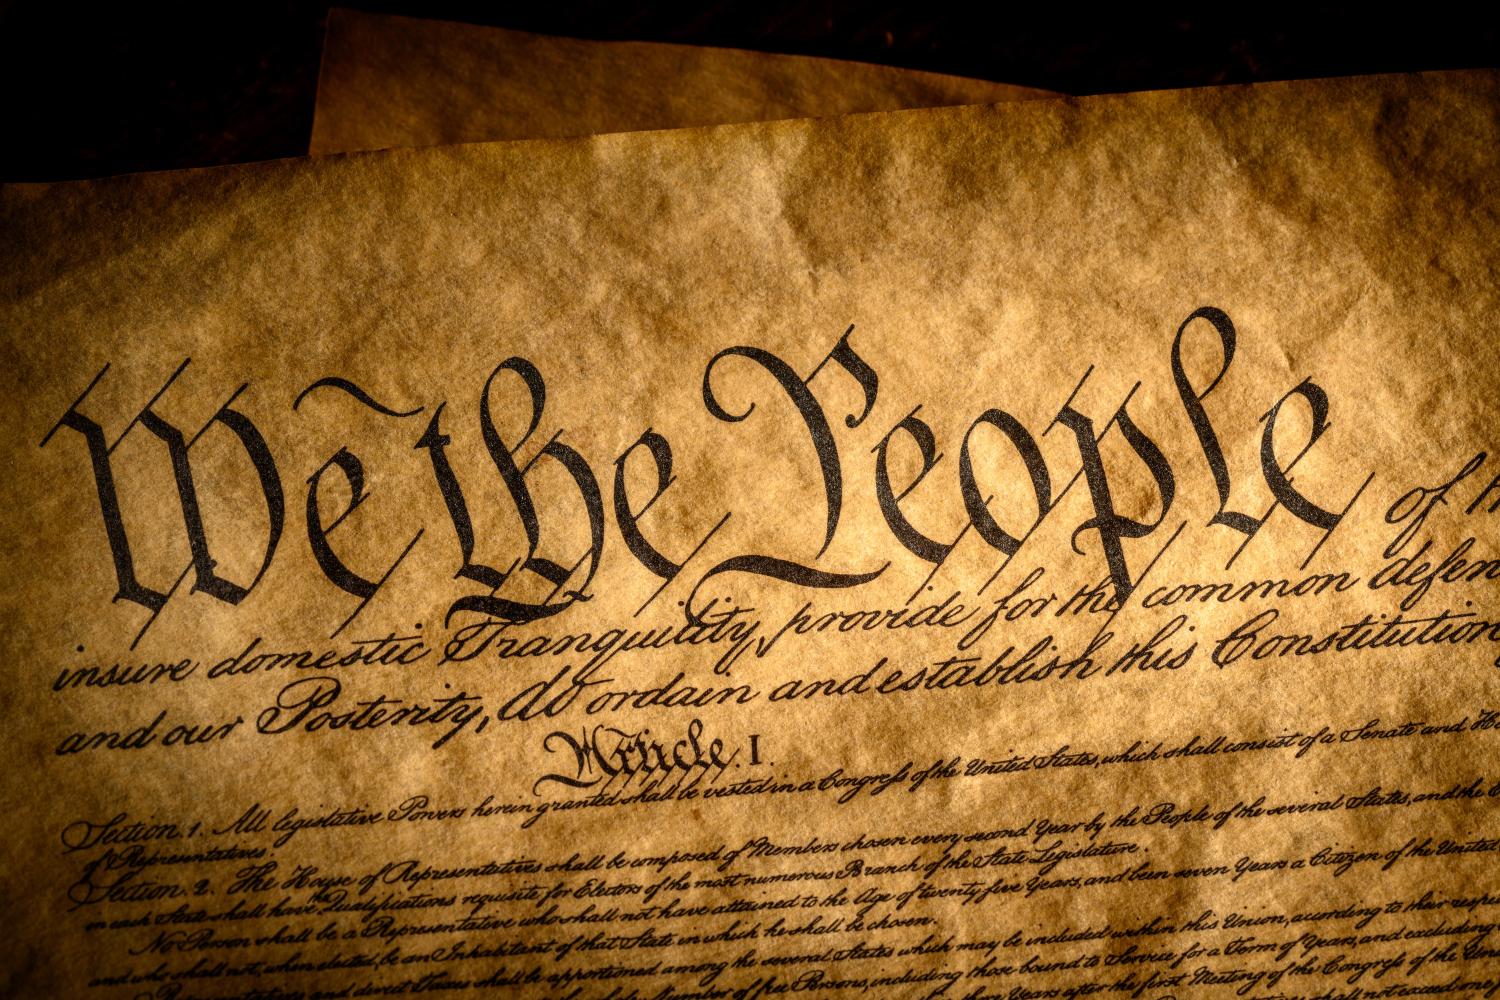 We the People of
insure domestic Tranquility, provide for the common defen
and our Posterity, do ordain and establish this Constitution
Article. I.
Section. 1. All legislative Powers herein granted shall be vested in a Congress of the United States, which shall consist of a Senate and Ho
of Representatives.
Section. 2. The House of Representatives shall be composed of Members chosen every second Year by the People of the several States, and the E
in each State shall have the Qualifications requisite for Electors of the most numerous Branch of the State Legislature.
No Person shall be a Representative who shall not have attained to the Age of twenty five Years, and been seven Years a Citizen of the United
and who shall not, when elected, be an Inhabitant of that State in which he shall be chosen.
Representatives and direct Taxes shall be apportioned among the several States which may be included within this Union, according to their respe
Number of free Persons, including those bound to Service for a Term of Years, and excluding
Years after the first Meeting of the Congress of the Uni
shall not exceed one